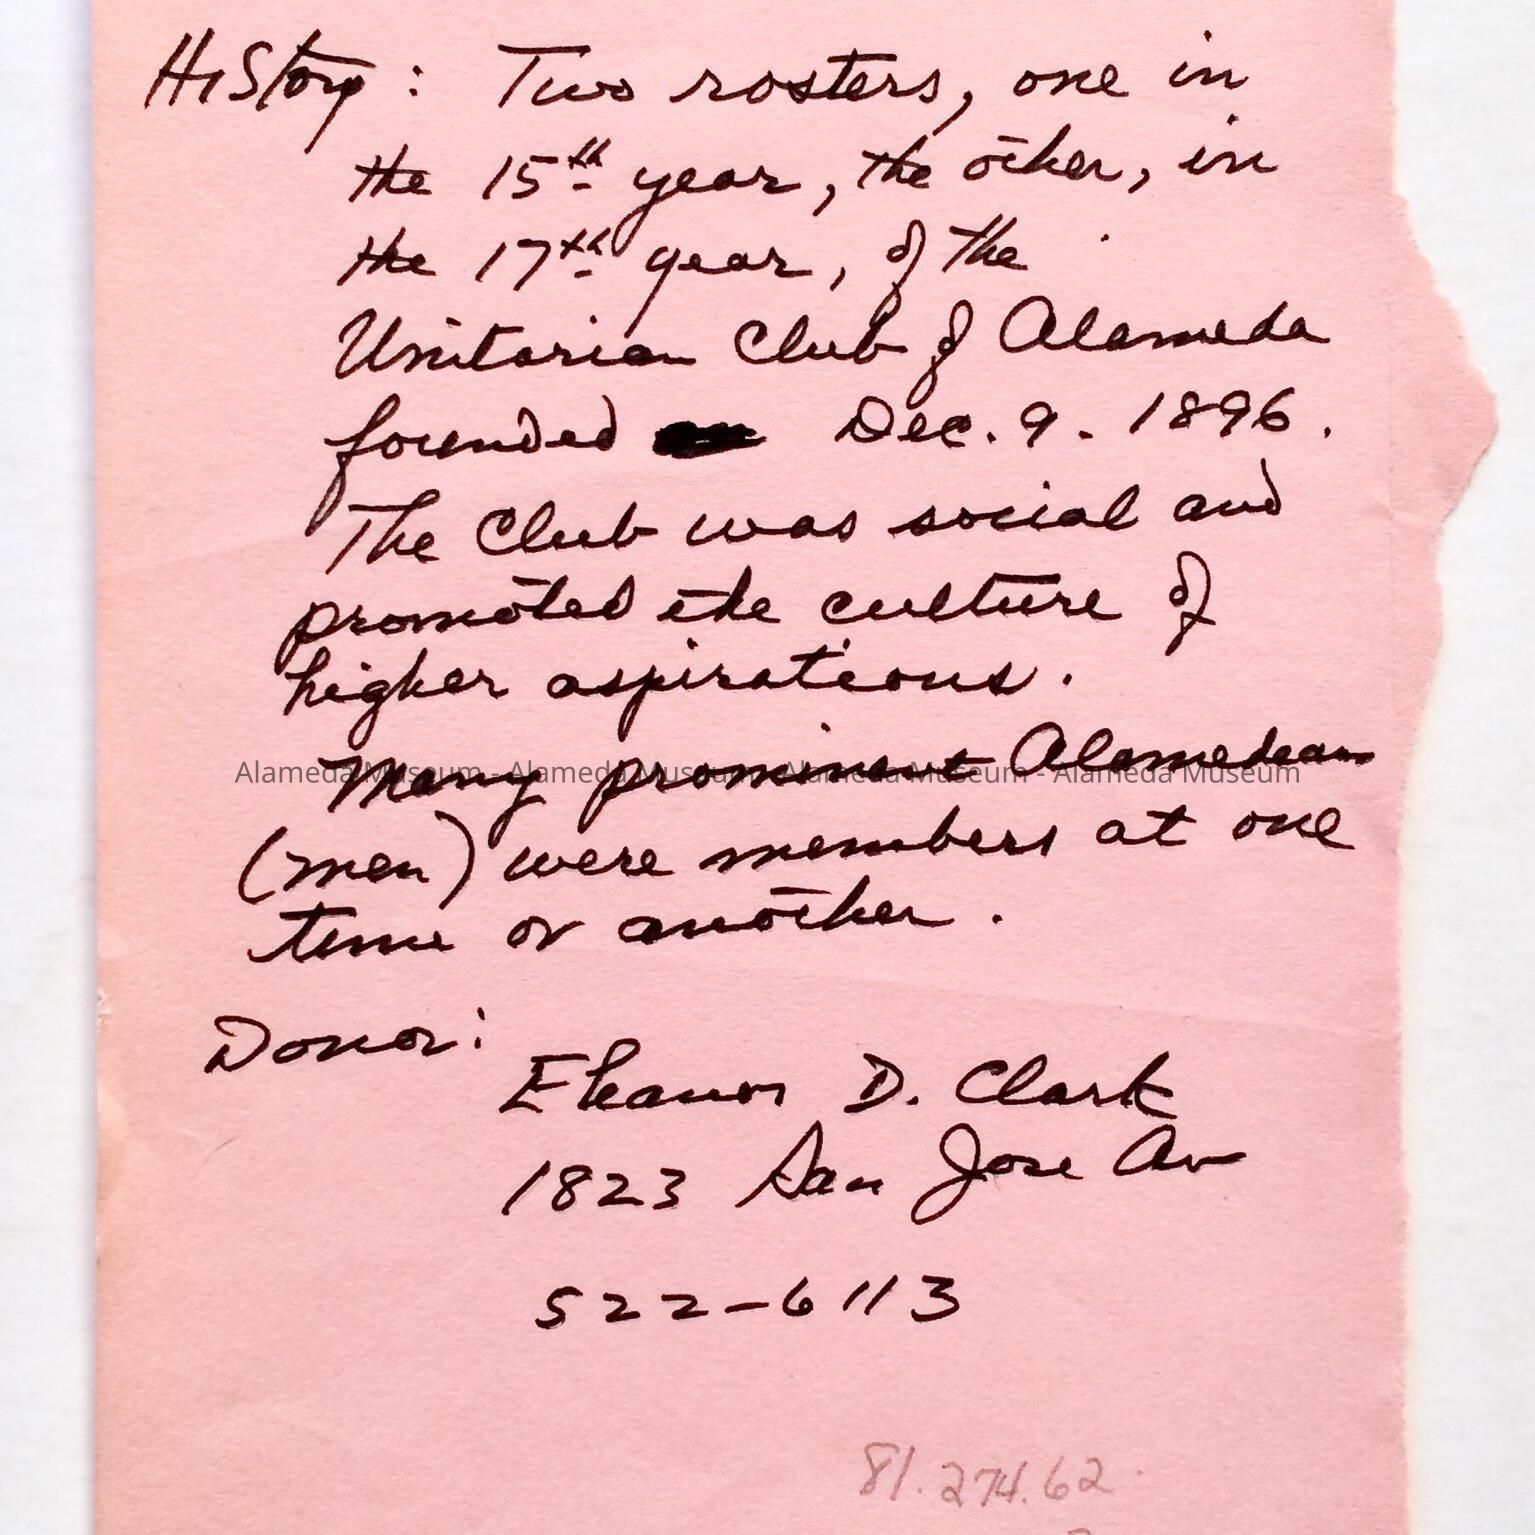 History: Two rosters, one in
the 15th year, the other, in
the 17th year, of the
Unitarian Club of Alameda
founded Dec. 9. 1896.
The Club was social and
promoted the culture of
higher aspirations.
Many prominent Alamedeans
Alameda Museum - Alameda Museum - Alameda Museum - Alameda Museum
(men) were members at one
time or another.
Donor:
Eleanor D. Clark
1823 San Jose Av
522-6113
81.274.62